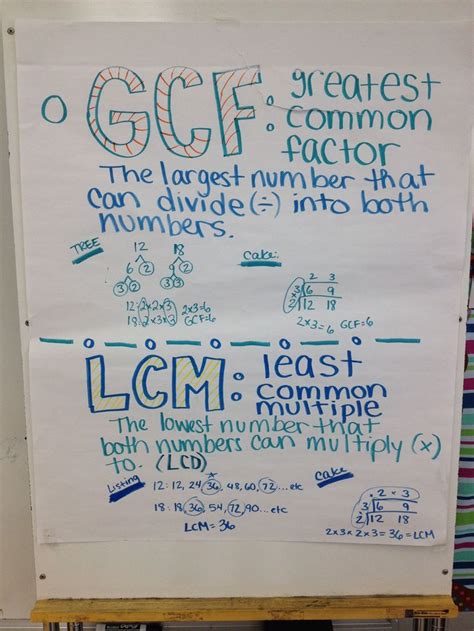 GCF: greatest
common
factor
The largest number that
can divide (÷) into both
numbers.
TREE
12 18
6 2 9 2
3 2 3 3
12: 2×2×3 2×3=6
18: 2×3×3 GCF=6
Cake:
2 3
3 6 9
2 12 18
2×3=6 GCF=6
LCM: least
common
multiple
The lowest number that
both numbers can multiply (x)
to. (LCD)
Listing
12: 12, 24, 36, 48, 60, 72...etc
18: 18, 36, 54, 72, 90...etc
LCM=36
Cake
2 × 3
3 6 9
2 12 18
2×3×2×3=36=LCM